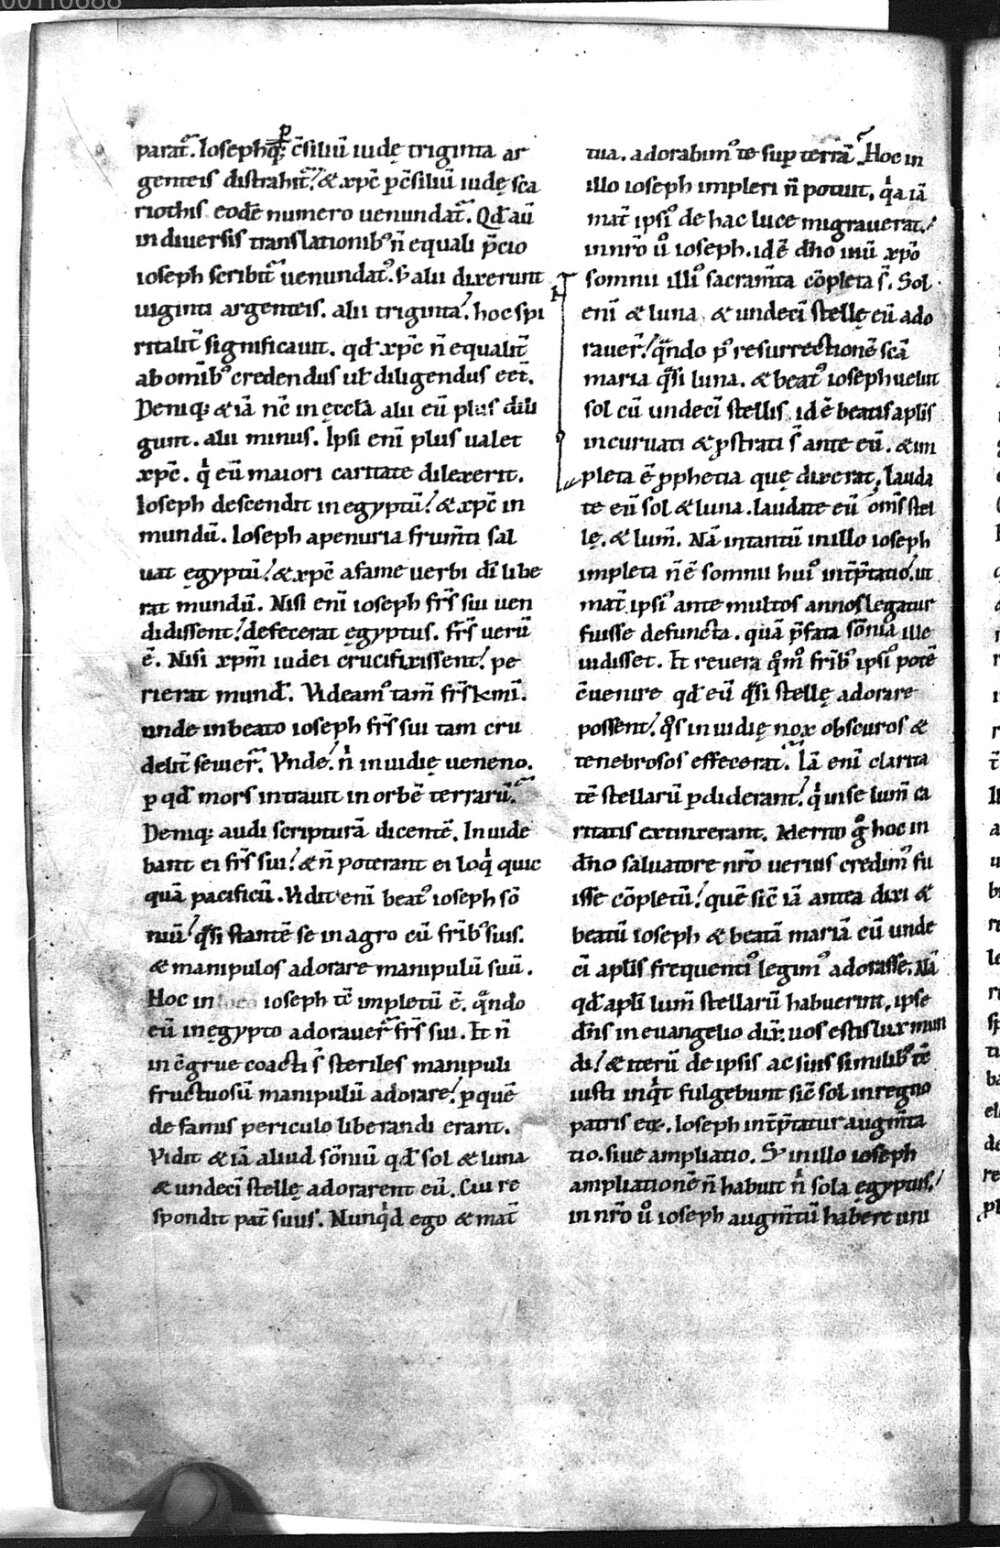 00110688
parat᷒. Ioseph q; ꝑ c̄siliū iudę triginta ar
genteis distrahit᷒. & xp̄c ꝑ c̄siliū iudę sca
riothis eodē numero uenundat᷒. Qd̄ aū
in diuersis translationib; n̄ equali p̄cio
ioseph scribit᷒ uenundat᷒. s; alii dixerunt
uiginti argenteis. alii triginta. hoc spi
ritalit̄ significauit. qd̄ xp̄c n̄ equalit̄
ab omīb; credendus uł diligendus eēt.
Deniq; & iā nc̄ in ęccła alii eū plus dili
gunt. alii minus. Ipsi enī plus ualet
xp̄c. qͥ eū maiori caritate dilexerit.
Ioseph descendit in egyptū. & xp̄c in
mundū. Ioseph a penuria frum̄ti sal
uat ęgyptū. & xp̄c a fame uerbi dī libe
rat mundū. Nisi enī ioseph fr̄s sui uen
didissent. defecerat ęgyptus. fr̄s uerū
ē. Nisi xp̄m iudei crucifixissent. pe
rierat mund᷒. Videam᷒ tam̄ fr̄s k̄mi.
unde in beato ioseph fr̄s sui tam cru
delit̄ seuier̄. Vnde. nͥ inuidię ueneno.
ꝑ qd̄ mors intrauit in orbē terrarū.
Deniq; audi scripturā dicentē. Inuide
bant ei fr̄s sui. & n̄ poterant ei loqͥ quic
quā pacificū. Vidit enī beat᷒ ioseph sō
niū. qͣsi stantē se in agro cū frīb; suis.
& manipulos adorare manipulū suū.
Hoc in ioseph tc̄ impletū ē. qͣndo
eū in ęgypto adorauer̄ fr̄s sui. Et n̄
inc̄grue coacti s̄ steriles manipuli
fructuosū manipulū adorare. ꝑ quē
de famis periculo liberandi erant.
Vidit & iā aliud sōniū qd̄ sol & luna
& undecī stellę adorarent eū. Cui re
spondit pat̄ suus. Nunqͥd ego & mat̄
tua. adorabim᷒ te suꝑ terrā. Hoc in
illo ioseph impleri n̄ potuit. qͥa iā
mat̄ ipsi᷒ de hac luce migrauerat.
in nr̄o ū ioseph. id ē dn̄o ihū xp̄o
somnii illi᷒ sacram̄ta cōpleta s̄. Sol
enī & luna & undecī stellę eū ado
rauer̄. qͣndo p᷒ resurrectionē scā
maria qͣsi luna. & beat᷒ ioseph uelut
sol cū undecī stellis. id ē beatis apłis
incuruati & ꝓstrati s̄ ante eū. & im
pleta ē ꝓphetia quę dixerat, lauda
te eū sol & luna. laudate eū om̄s stel
lę. & lum̄. Nā in tantū in illo ioseph
impleta n̄ ē somnii hui᷒ int̄p̄tatio. ut
mat̄ ipsi᷒ ante multos annos legatur
fuisse defuncta. quā p̄fata sōnia ille
uidisset. Et reuera qͦm̄ frīb; ipsi᷒ potē
c̄uenire qd̄ eū qͣsi stellę adorare
possent. qͦs inuidię nox obscuros &
tenebrosos effecerat. Iā enī clarita
tē stellarū ꝑdiderant. qͥ in se lum̄ ca
ritatis extinxerant. Merito gͦ hoc in
dn̄o saluatore nr̄o uerius credim᷒ fu
isse cōpletū. quē sic̄ iā antea dixi &
beatū ioseph & beatā mariā cū unde
cī apłis frequenti᷒ legim᷒ adorasse. Nā
qd̄ apłi lum̄ stellarū habuerint, ipse
dn̄s in euangelio dix̄. uos estis lux mun
di. & iterū de ipsis ac suis similib; tc̄
iusti inqͥt fulgebunt sic̄ sol in regno
patris etc̄. Ioseph int̄p̄tatur augm̄ta
tio. siue ampliatio. S; in illo ioseph
ampliationē n̄ habuit nͥ sola ęgyptus.
in nr̄o ū ioseph augm̄tū habere uni